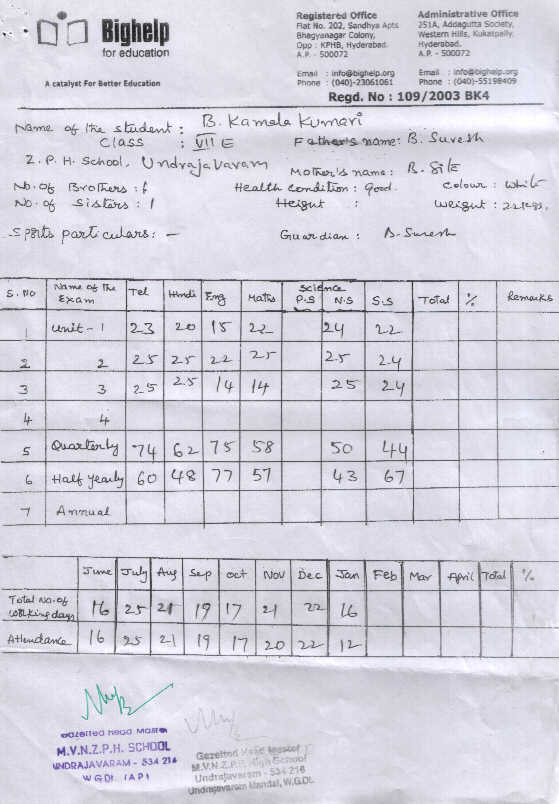 Bighelp
for education
A catalyst For Better Education
Registered Office
Flat No. 202, Sandhya Apts
Bhagyanagar Colony,
Opp : KPHB, Hyderabad.
A.P. - 500072
Email : info@bighelp.org
Phone : (040)-23061061
Administrative Office
251A, Addagutta Society,
Western Hills, Kukatpally,
Hyderabad.
A.P. - 500072
Email : info@bighelp.org
Phone : (040)-55198409
Regd. No : 109/2003 BK4
Name of the student : B. Kamala Kumari
Class : VII E Father's name: B. Suresh
Z.P.H. School, Undrajavaram Mother's name: B.
No. of Brothers : Health Condition : Good. Colour : White
No. of Sisters : 1 Height : Weight : 22kgs.
Sports particulars: - Guardian : B. Suresh
S. No Name of the Exam Tel Hindi Eng Maths Science P.S N.S S.S Total % Remarks
1 Unit - 1 23 20 15 22 24 22
2 2 25 25 22 25 25 24
3 3 25 25 14 14 25 24
4 4
5 Quarterly 74 62 75 58 50 44
6 Half yearly 60 48 77 57 43 67
7 Annual
June July Aug Sep Oct Nov Dec Jan Feb Mar April Total %
Total No. of working days 16 25 21 19 17 21 22 16
Attendance 16 25 21 19 17 20 22 12
Gazetted Head Master
M.V.N.Z.P.H. SCHOOL
UNDRAJAVARAM - 534 216
W.G.Dt. (A.P)
Gazetted Head Master
M.V.N.Z.P.H. High School
Undrajavaram - 534 216
Undrajavaram Mandal, W.G.Dt.